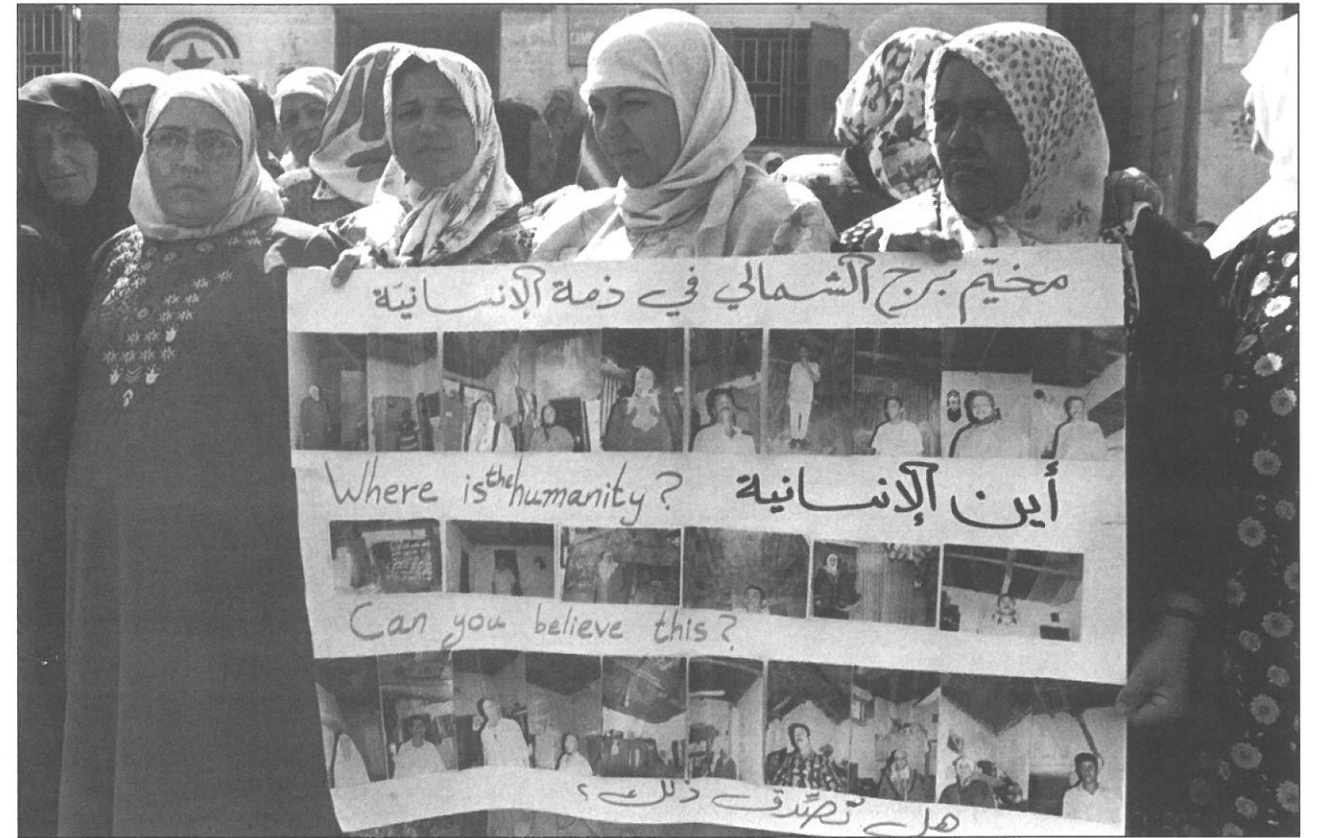 CAMP
مخيّم برج الشمالي في ذمة الإنسانيّة
Where is the humanity? أين الإنسانية
Can you believe this?
هل تصّدق ذلك؟